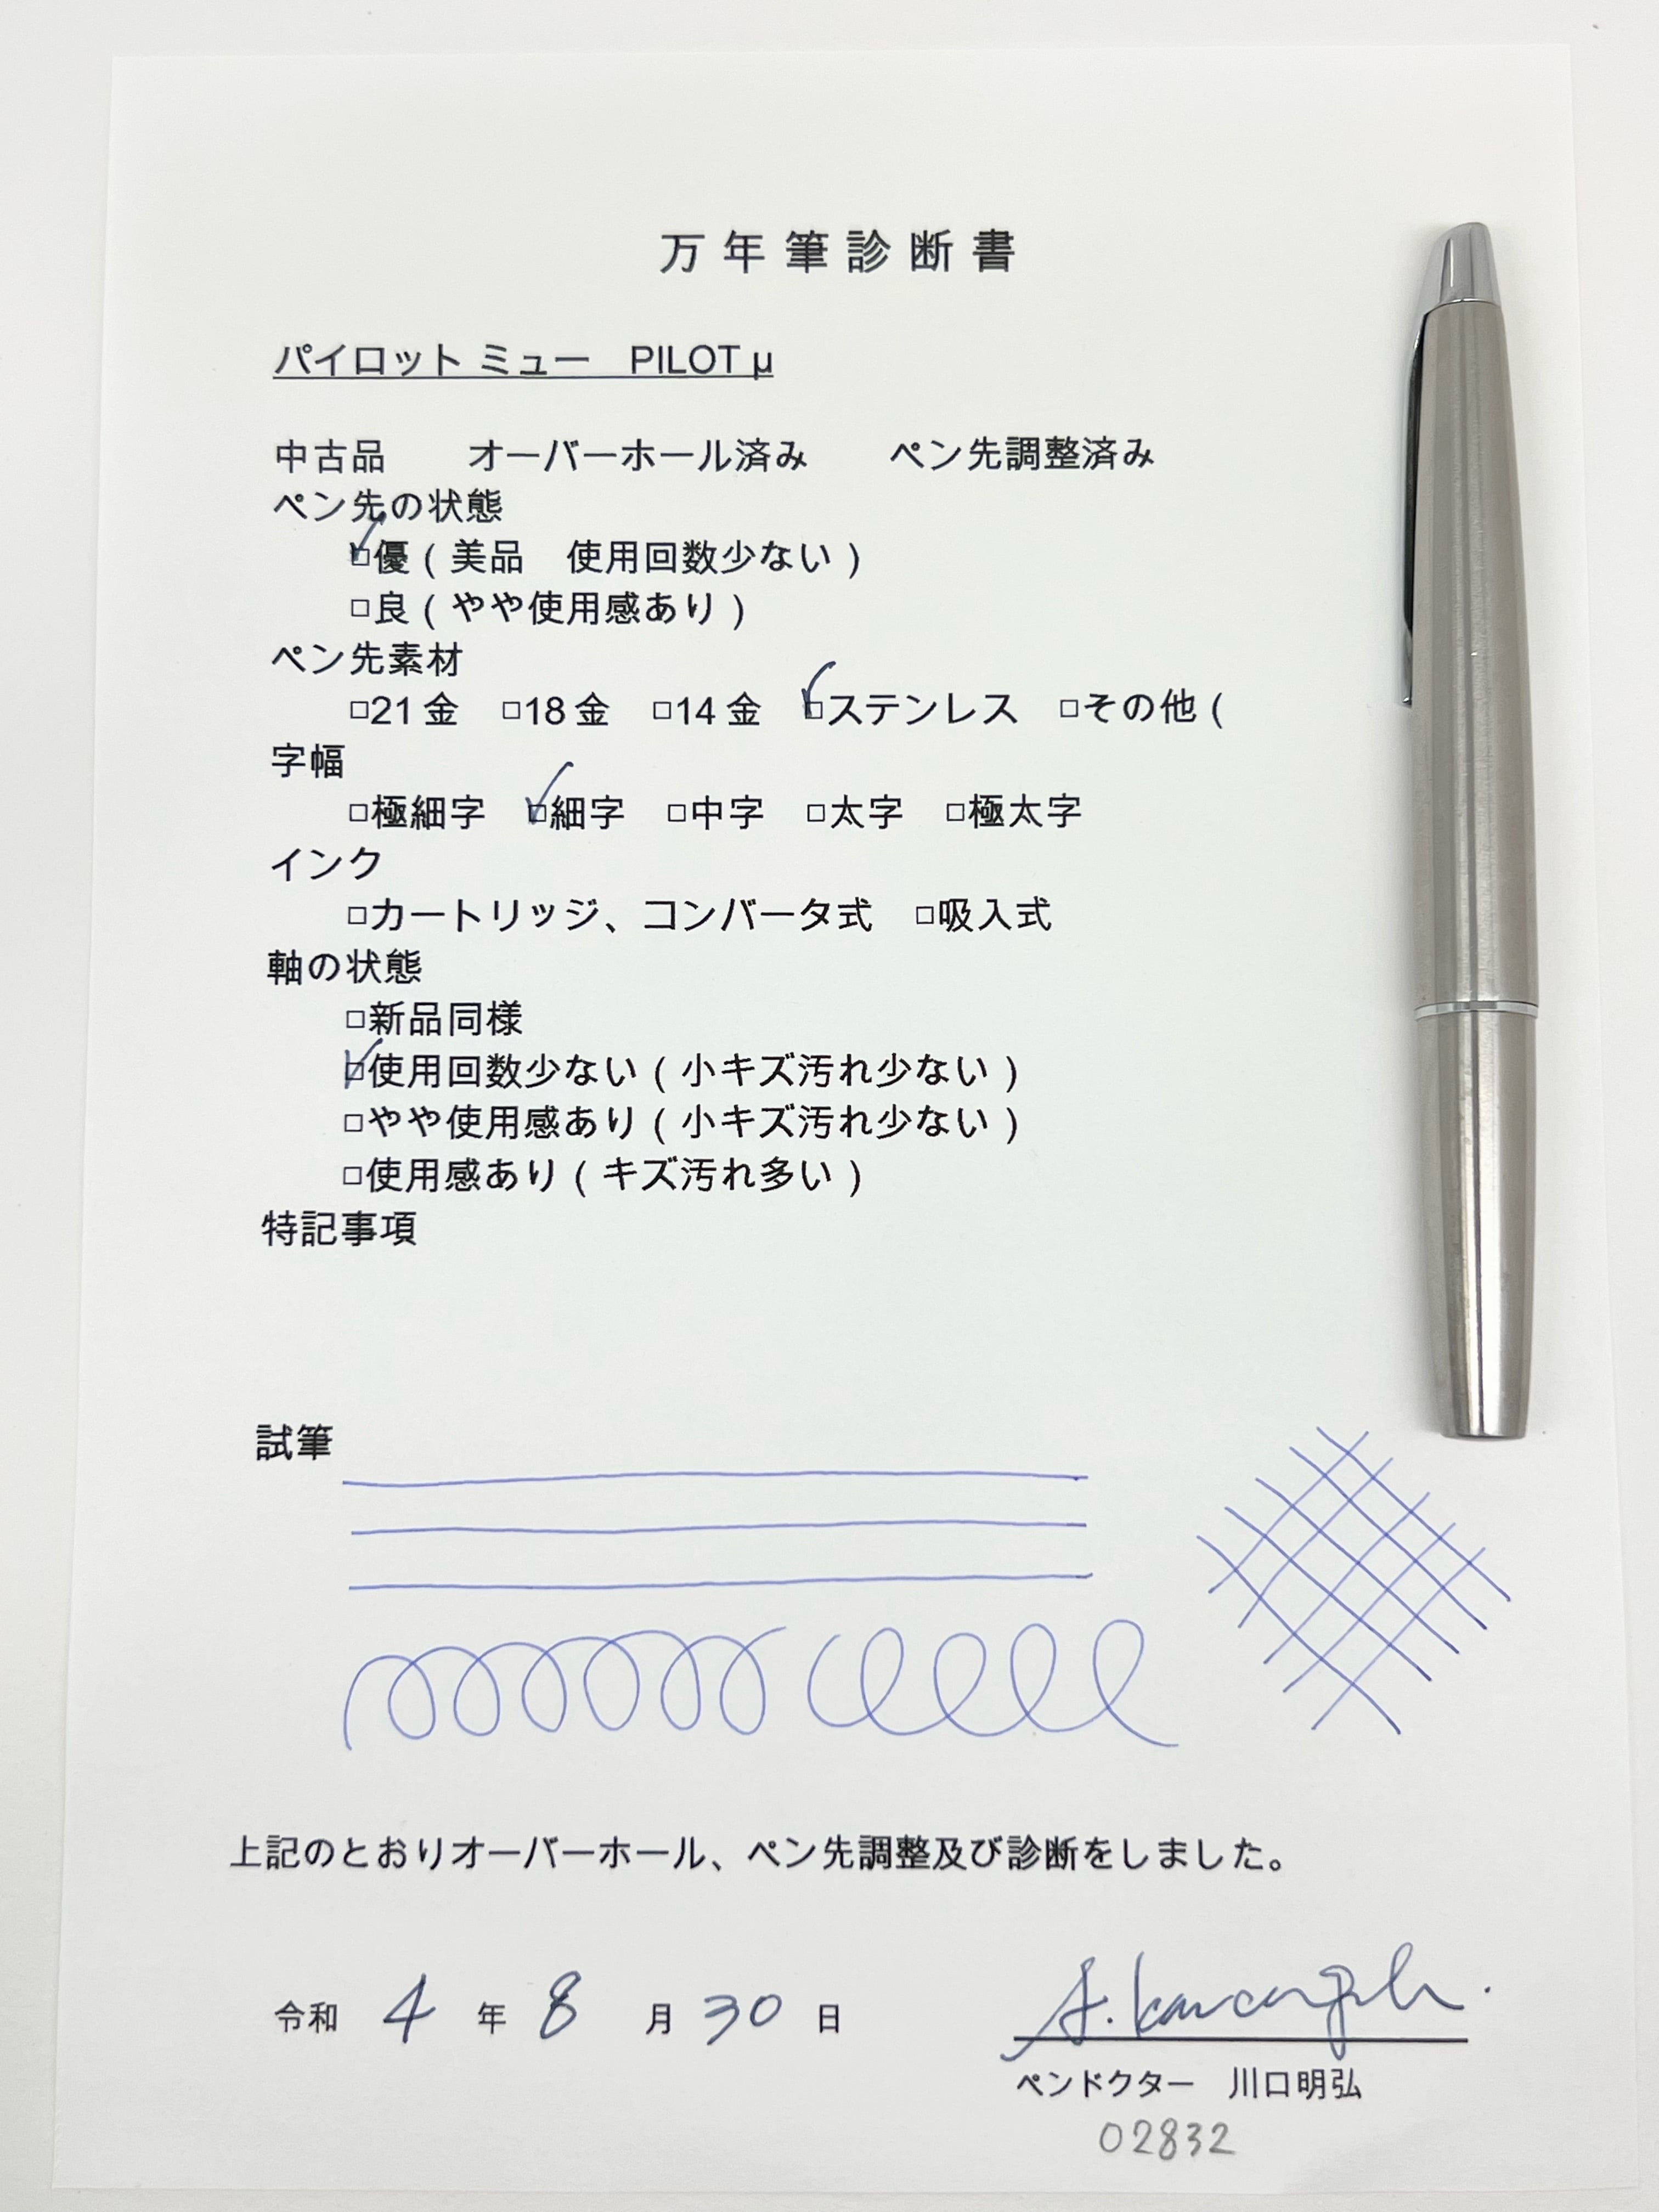 万年筆診断書
パイロット ミュー　PILOT μ
中古品　　オーバーホール済み　　ペン先調整済み
ペン先の状態
☑優（美品　使用回数少ない）
□良（やや使用感あり）
ペン先素材
□21金　□18金　□14金　☑ステンレス　□その他（
字幅
□極細字　☑細字　□中字　□太字　□極太字
インク
□カートリッジ、コンバータ式　□吸入式
軸の状態
□新品同様
☑使用回数少ない（小キズ汚れ少ない）
□やや使用感あり（小キズ汚れ少ない）
□使用感あり（キズ汚れ多い）
特記事項
試筆
上記のとおりオーバーホール、ペン先調整及び診断をしました。
令和 4 年 8 月 30 日
A. Kawaguchi.
ペンドクター　川口明弘
02832